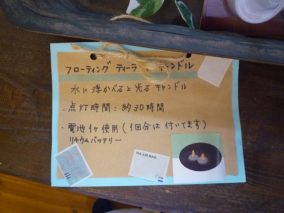 フローティング ティーライトキャンドル
水に浮かべると光るキャンドル
・点灯時間：約30時間
・電池1ヶ使用（1回分は付いてます）
リチウムバッテリー
VIA AIR MAIL